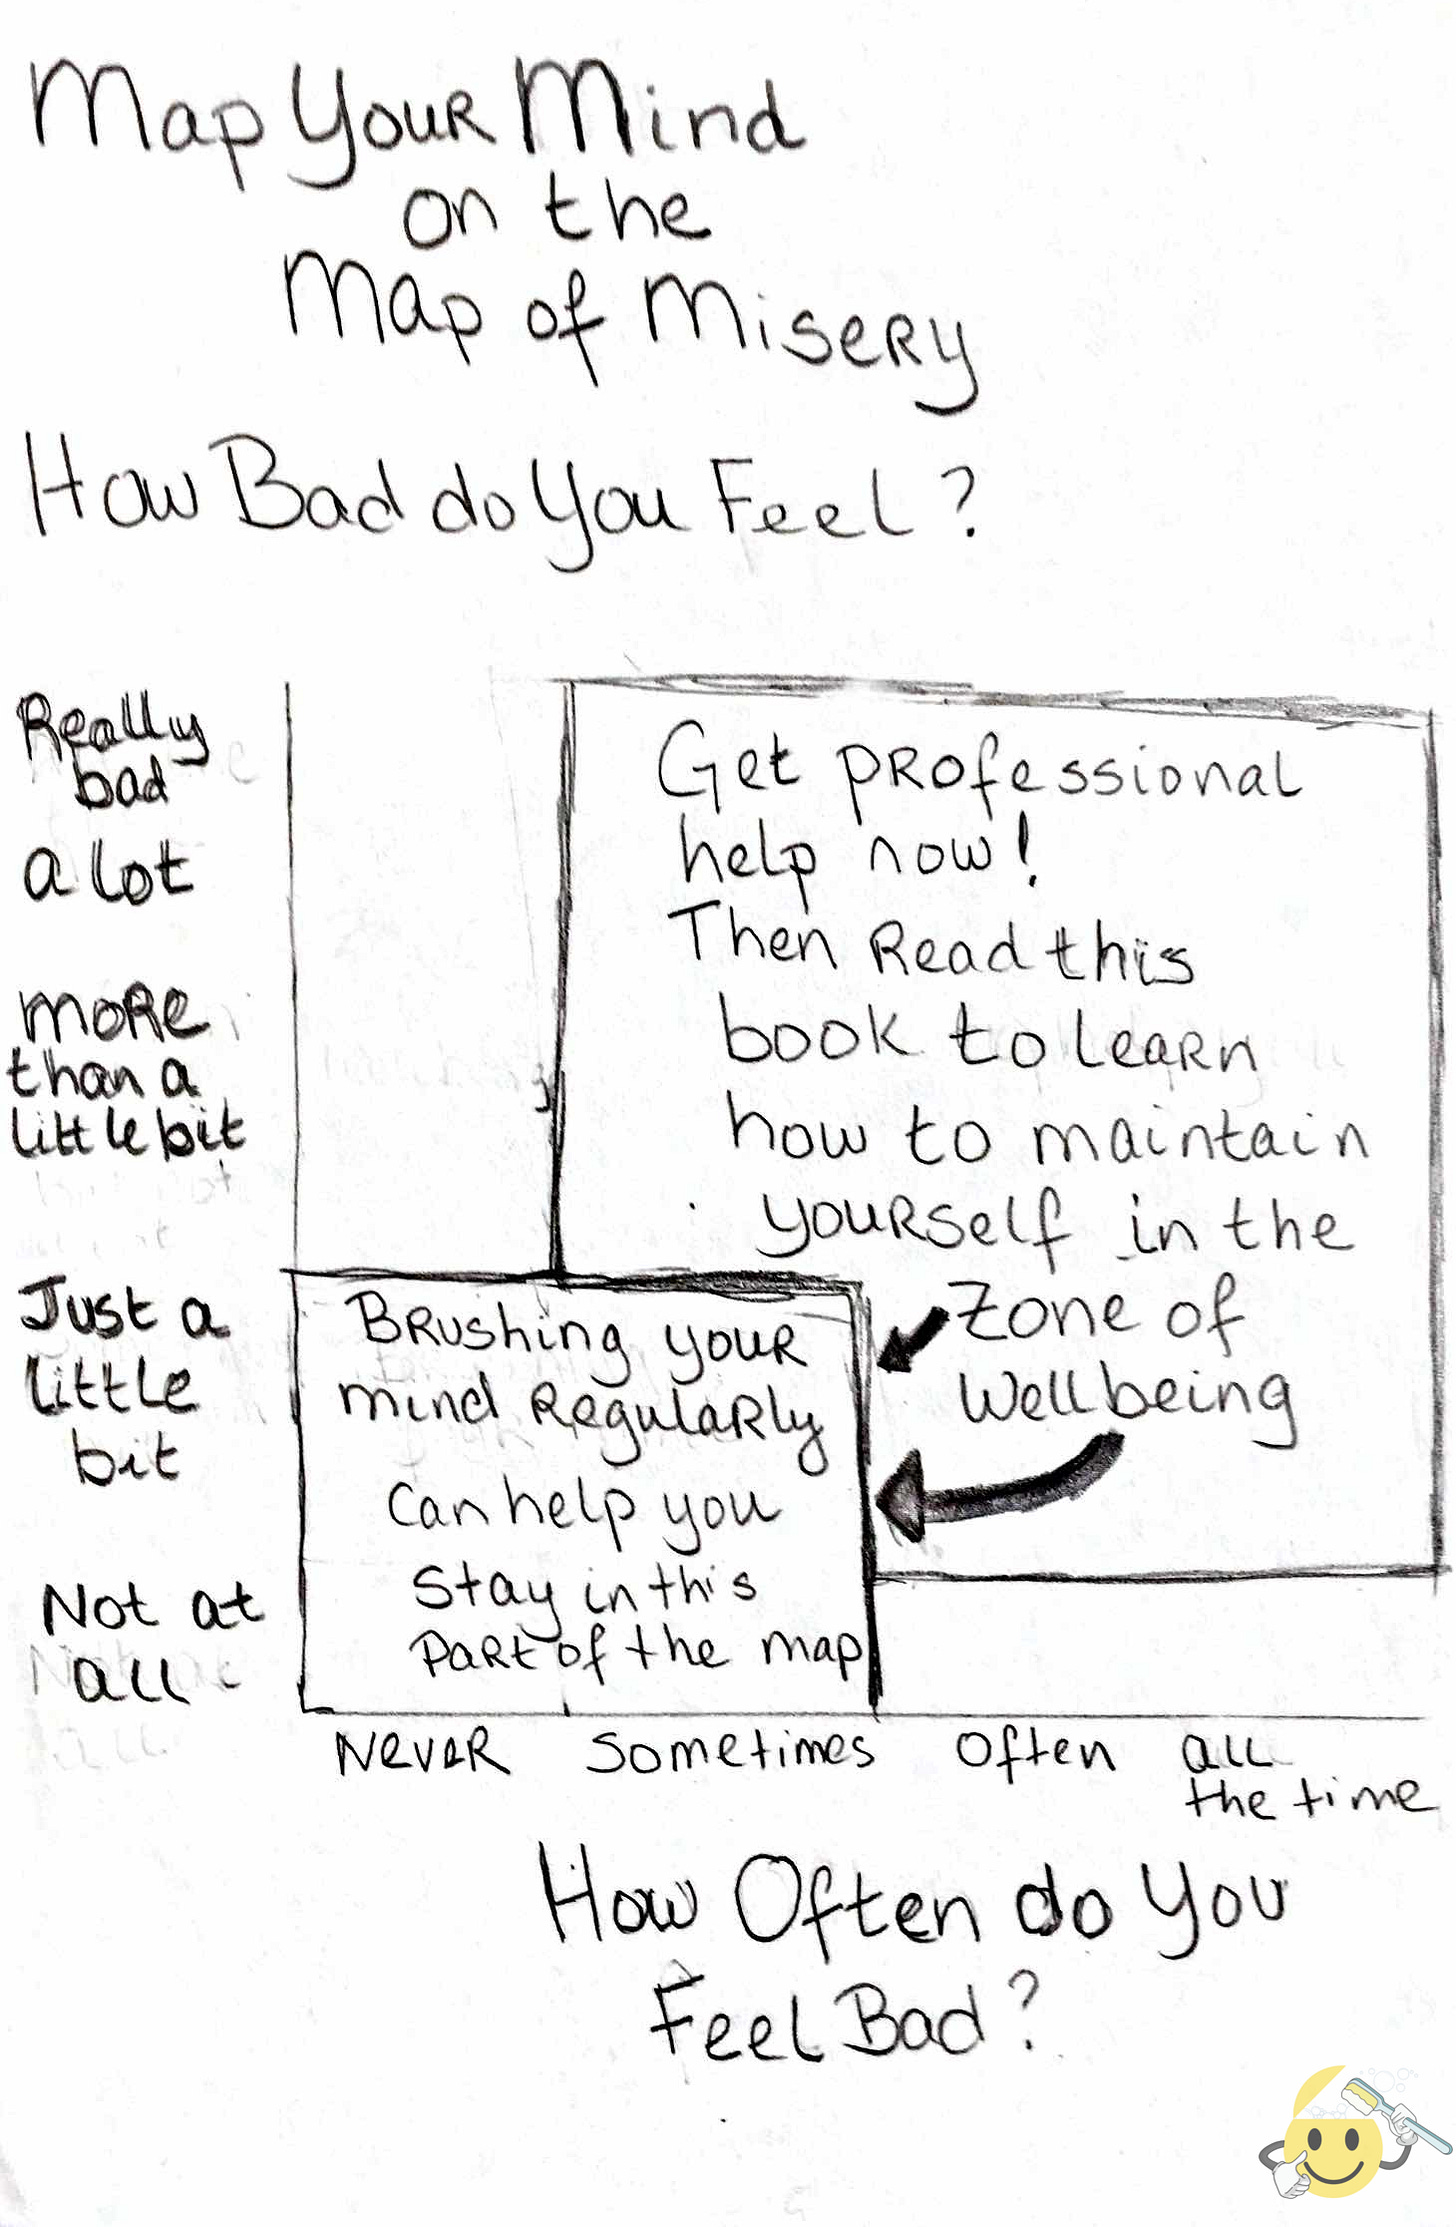 Map Your Mind
on the
Map of Misery
How Bad do You Feel?
Really
bad
a lot
more
than a
little bit
Just a
little
bit
Not at
all
Get professional
help now!
Then Read this
book to learn
how to maintain
yourself in the
Zone of
Wellbeing
Brushing your
mind Regularly
can help you
stay in this
part of the map
Never Sometimes Often all
the time
How Often do You
Feel Bad?